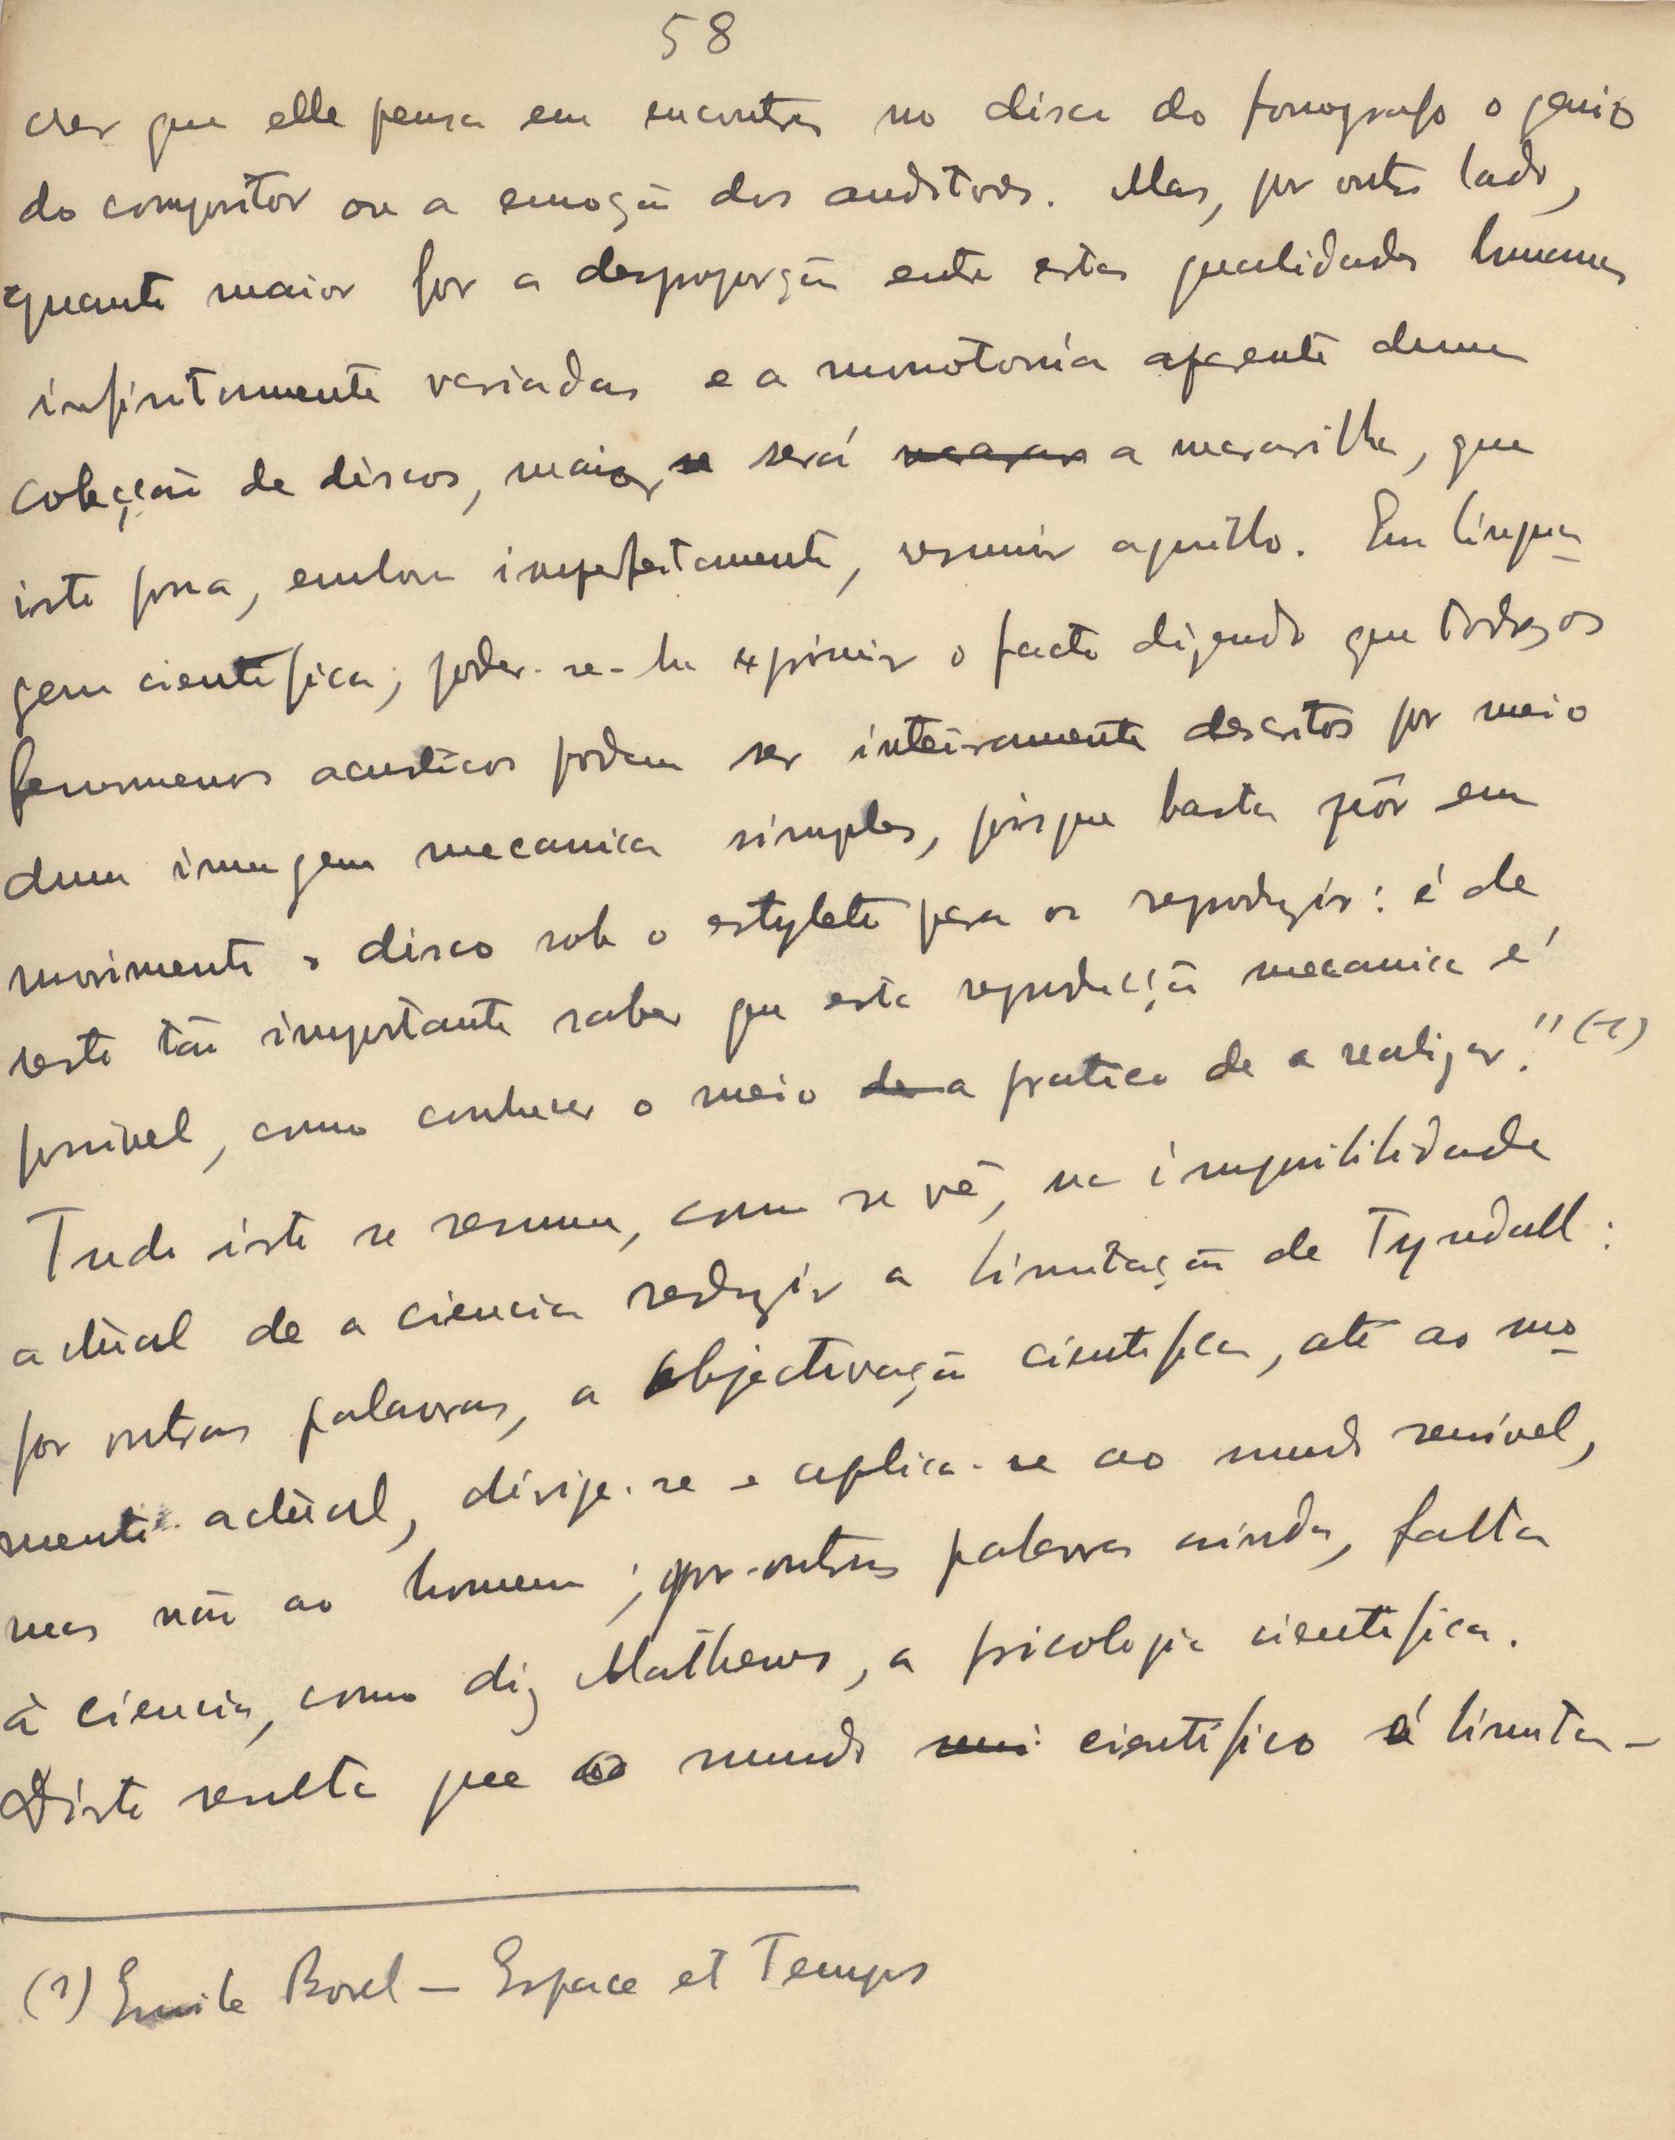 58
crer que elle pensa em encontrar no disco do fonografo o genio
do compositor ou a emoção dos auditores. Mas, por outro lado,
quanto maior for a desproporção entre estas qualidades humanas
infinitamente variadas e a monotonía aparente duma
colecção de discos, maior será a maravilha, que
isto possa, embora imperfeitamente, resumir aquillo. Em lingua-
gem cientifica, poder-se-ha exprimir o facto dizendo que todos os
fenomenos acusticos podem ser inteiramente descritos por meio
duma imagem mecanica simples, pois que basta pôr em
movimento o disco sob o estylete para os reproduzir: é de
resto tão importante saber que esta reproducção mecanica é
possivel, como conhecer o meio pratico de a realizar." (1)
Tudo isto se resume, como se vê, na impossibilidade
actual de a ciencia reduzir a limitação de Tyndall:
por outras palavras, a objectivação cientifica, até ao mo-
mento actual, dirije-se e aplica-se ao mundo sensivel,
mas não ao homem; por outras palavras ainda, falta
à ciencia, como diz Mathews, a psicologia cientifica.
Disto resulta que o mundo cientifico é limita-
(1) Emile Borel - Espace et Temps